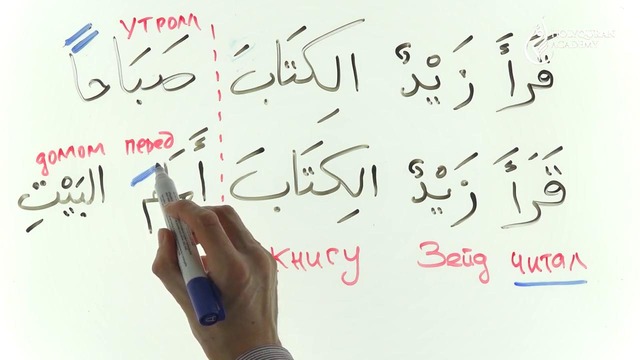 утром
ACADEMY
قَرَأَ زَيْدٌ الكِتَابَ صَبَاحاً
домом перед
قَرَأَ زَيْدٌ الكِتَابَ أَمَامَ البَيْتِ
книгу Зейд читал